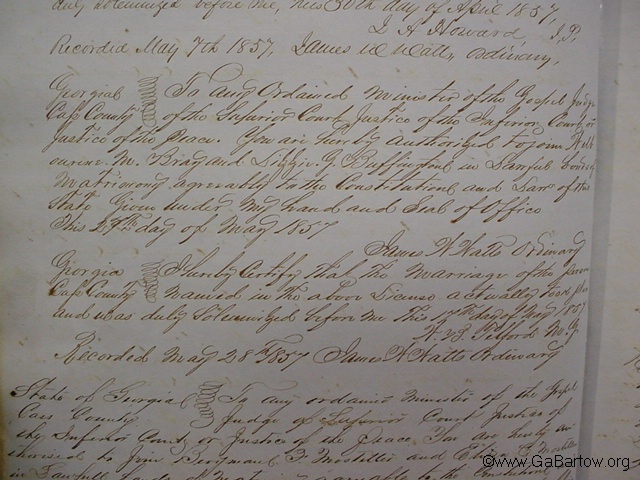 duly solemnized before me, this 30th day of April 1857,
Howard, J.P.
Recorded May 7th 1857, James Watt, Ordinary,
Georgia To any Ordained Minister of the Gospel Judge
Cass County of the Superior Court Justice of the Inferior Court or
Justice of the Peace. You are hereby authorized to join
M. Bray and Lizzie. G. Buffington in Lawful
Matrimony agreably to the Constitution and Laws of this
State Given under My hand and Seal of Office
This day of May 1857
James W Watts Ordinary
Georgia I hereby Certify that the Marriage of the
Cass County named in the above License actually
and was duly Solemnized before me This 17th day of May 1857
Telford M. G.
Recorded May 28th 1857 James W Watts Ordinary
State of Georgia To any ordained Minister of the Gospel
Cass County Judge of Superior Court Justice of
the Inferior County or Justice of the Peace You are hereby au
thorised to Join F. Mostiller and
in Lawfull to the Constitution
©www.GaBartow.org